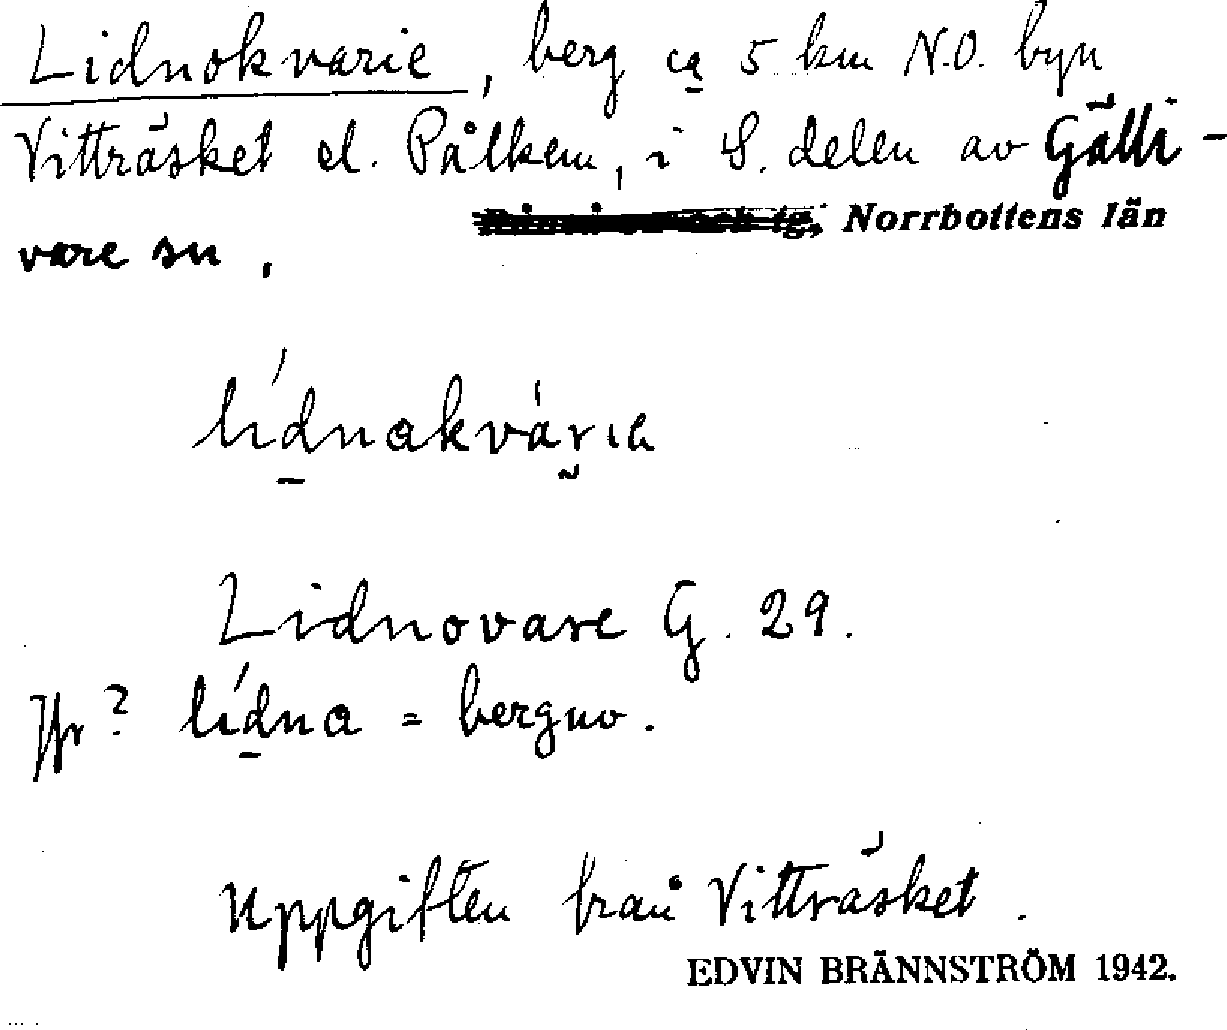 Lidnokvarie, berg ca 5 km N.O. byn
Vitträsket el. Pålkem, i S. delen av Gälli-
Norrbottens län
vare sn.
lídnakvárie
Lidnovare G. 29.
Jfr? lídna = berguv.
Uppgiften från Vitträsket.
EDVIN BRÄNNSTRÖM 1942.